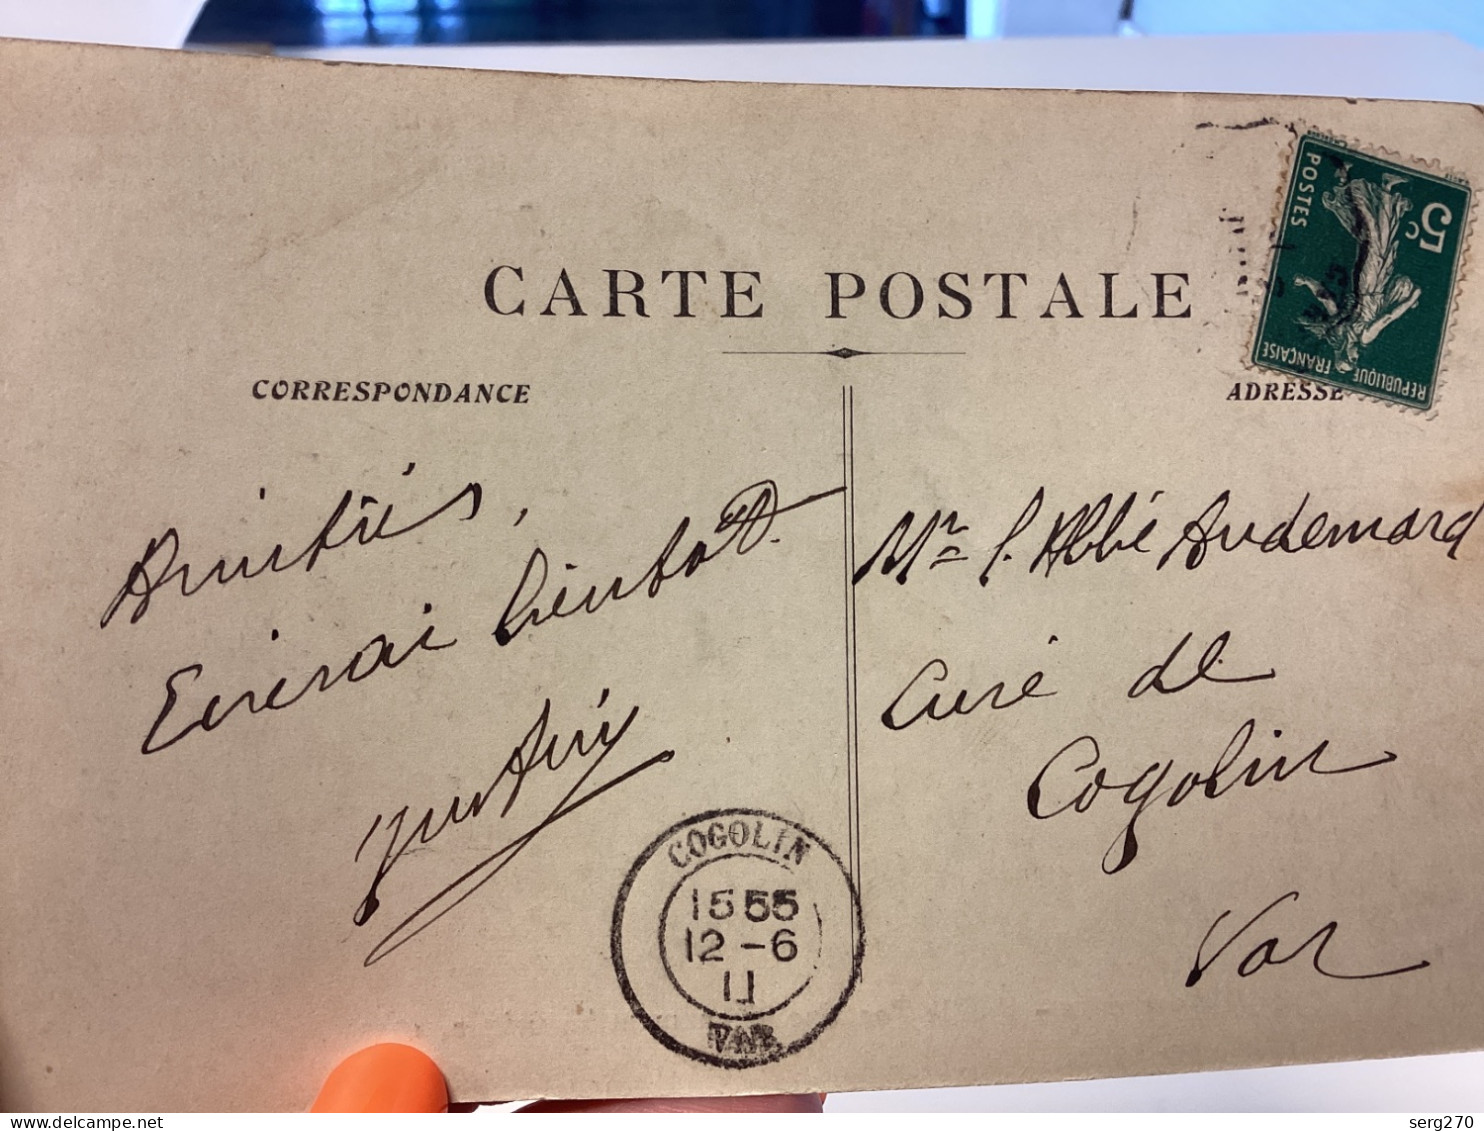 CARTE POSTALE
CORRESPONDANCE
ADRESSE
POSTES
5c
REPUBLIQUE FRANÇAISE
Amitiés,
Ecrirai bientôt.
Mr l'Abbé Audemard
Curé de
Cogolin
Var
COGOLIN
15 55
12-6
11
VAR
delcampe.net
serg270